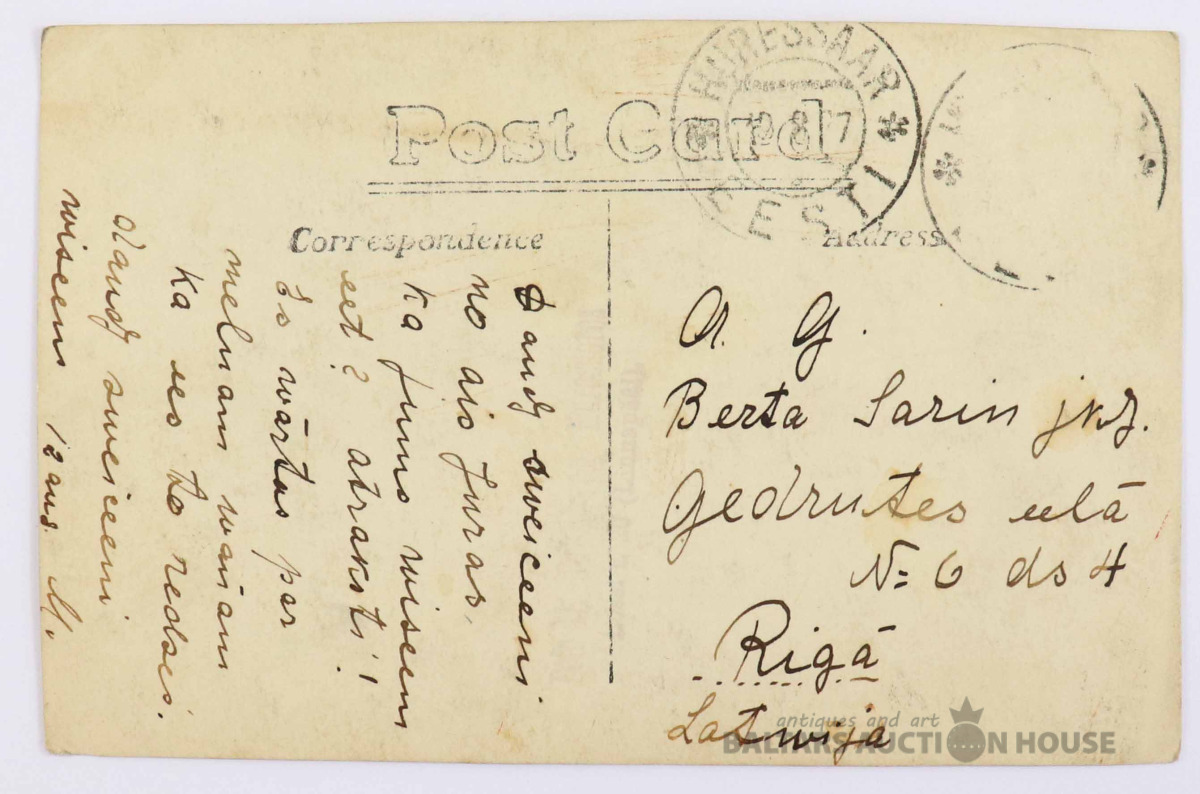 Post Card
KURESSAAR
EESTI
Correspondence
Address
Daudz sweiceeni
no ais juras,
Ka jums wiseem
eet? atraksti!
Es wārtos par
melnam wainam
Ka ses to redses.
Daudz sweiceeni
wiseem 12 aug. M.
A. G.
Berta Sarin jkz.
Gedrutes eelā
№ 6 ds 4
Rigā
Latwija
antiques and art
BALTARS AUCTION HOUSE